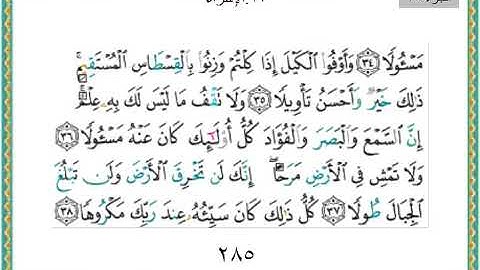 مَسْـُٔولًا ﴿٣٤﴾ وَأَوْفُوا۟ ٱلْكَيْلَ إِذَا كِلْتُمْ وَزِنُوا۟ بِٱلْقِسْطَاسِ ٱلْمُسْتَقِيمِ ۚ
ذَٰلِكَ خَيْرٌ وَأَحْسَنُ تَأْوِيلًا ﴿٣٥﴾ وَلَا تَقْفُ مَا لَيْسَ لَكَ بِهِۦ عِلْمٌ ۚ
إِنَّ ٱلسَّمْعَ وَٱلْبَصَرَ وَٱلْفُؤَادَ كُلُّ أُو۟لَـٰٓئِكَ كَانَ عَنْهُ مَسْـُٔولًا ﴿٣٦﴾
وَلَا تَمْشِ فِى ٱلْأَرْضِ مَرَحًا ۖ إِنَّكَ لَن تَخْرِقَ ٱلْأَرْضَ وَلَن تَبْلُغَ
ٱلْجِبَالَ طُولًا ﴿٣٧﴾ كُلُّ ذَٰلِكَ كَانَ سَيِّئُهُۥ عِندَ رَبِّكَ مَكْرُوهًا ﴿٣٨﴾
٢٨٥